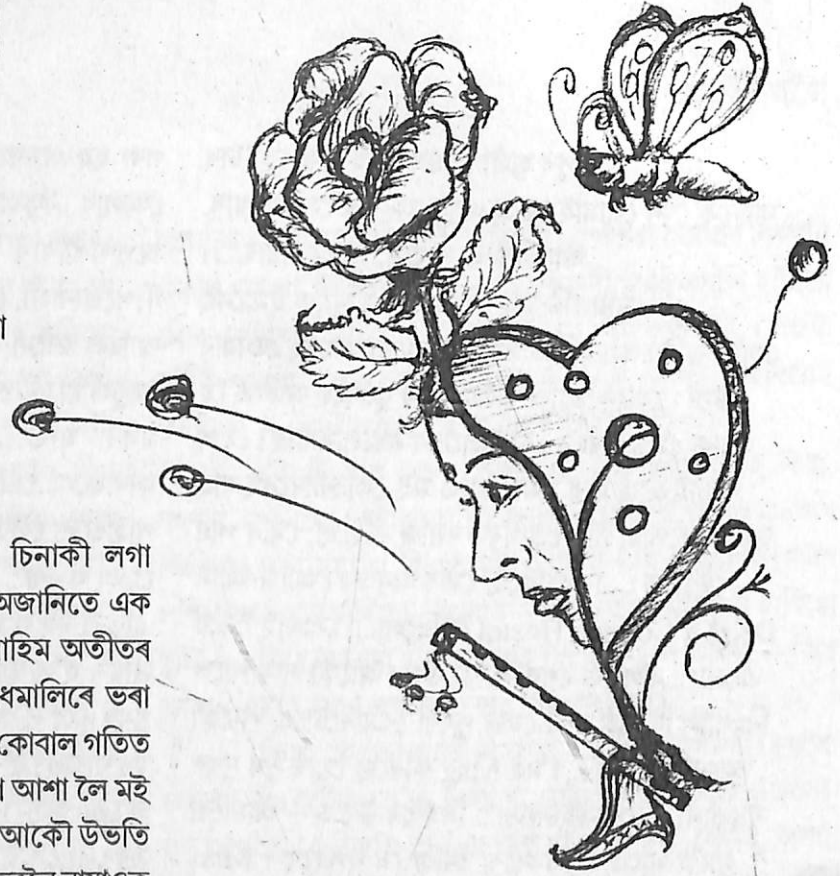 া
চিনাকী লগা
অজানিতে এক
াহিম অতীতৰ
ধমালিৰে ভৰা
কোবাল গতিত
া আশা লৈ মই
আকৌ উভতি